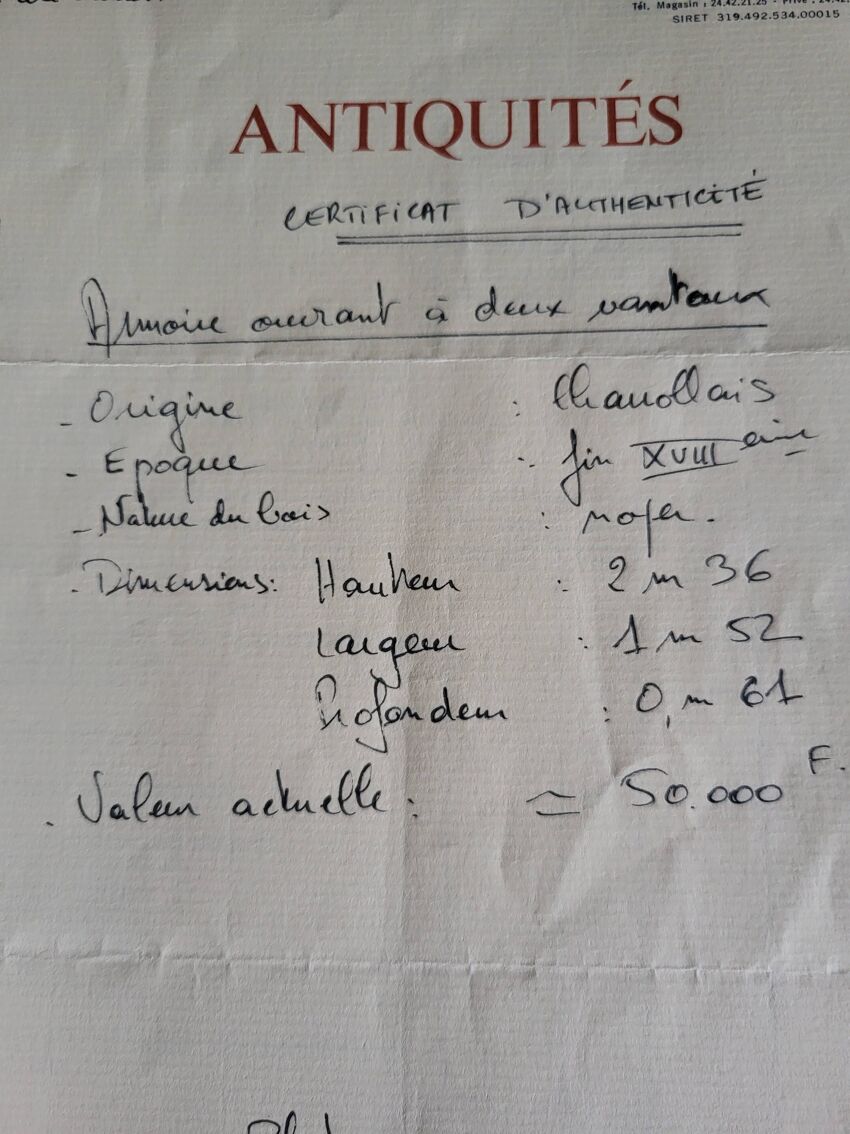 Tél. Magasin : 24.42.21.25 - Privé : 24.42
SIRET 319.492.534.00015
ANTIQUITÉS
CERTIFICAT D'AUTHENTICITÉ
Armoire ouvrant à deux vantaux
- Origine : Charollais
- Epoque : fin XVIII eme
- Nature du bois : noyer.
- Dimensions: Hauteur : 2 m 36
Largeur : 1 m 52
Profondeur : 0, m 61
- Valeur actuelle : ≃ 50.000 F.